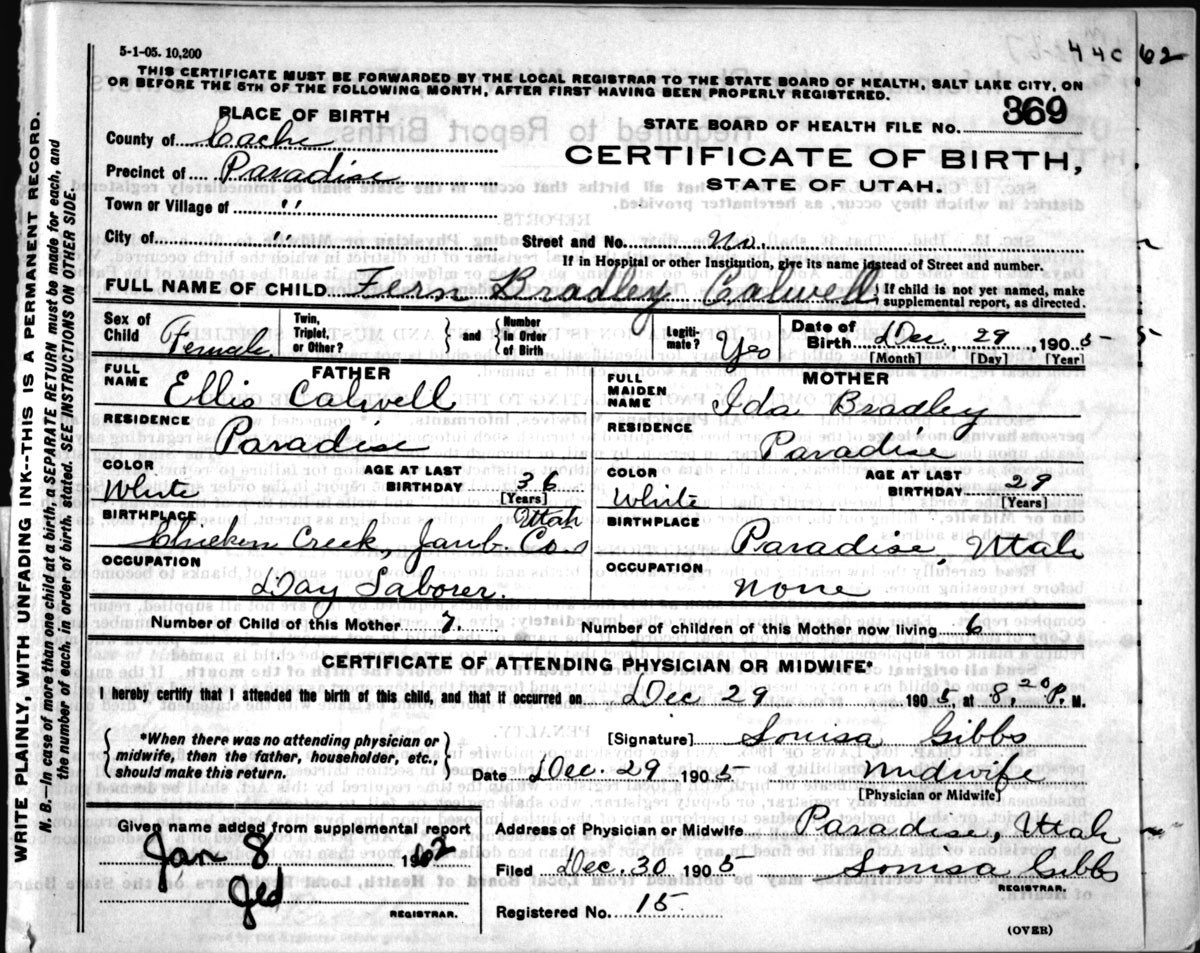 5-1-05. 10,200
44c 62
THIS CERTIFICATE MUST BE FORWARDED BY THE LOCAL REGISTRAR TO THE STATE BOARD OF HEALTH, SALT LAKE CITY, ON
OR BEFORE THE 5TH OF THE FOLLOWING MONTH, AFTER FIRST HAVING BEEN PROPERLY REGISTERED.
PLACE OF BIRTH
STATE BOARD OF HEALTH FILE NO. 369
County of Cache
CERTIFICATE OF BIRTH,
Precinct of Paradise
STATE OF UTAH.
Town or Village of "
City of "
Street and No. No.
If in Hospital or other Institution, give its name instead of Street and number.
FULL NAME OF CHILD Fern Bradley Calwell { If child is not yet named, make
supplemental report, as directed.
Sex of Child Female Twin, Triplet, or Other? } and { Number in Order of Birth Legiti-mate? Yes Date of Birth Dec., 29, 1905
[Month] [Day] [Year]
FATHER
MOTHER
FULL NAME Ellis Calwell
FULL MAIDEN NAME Ida Bradley
RESIDENCE Paradise
RESIDENCE Paradise
COLOR White AGE AT LAST BIRTHDAY 36 [Years]
COLOR White AGE AT LAST BIRTHDAY 29 [Years]
BIRTHPLACE Chicken Creek, Co. Utah
BIRTHPLACE Paradise, Utah
OCCUPATION Day Laborer.
OCCUPATION None
Number of Child of this Mother 7.
Number of children of this Mother now living 6
CERTIFICATE OF ATTENDING PHYSICIAN OR MIDWIFE*
I hereby certify that I attended the birth of this child, and that it occurred on Dec 29 1905, at 8,20 P. M.
*When there was no attending physician or
midwife, then the father, householder, etc.,
should make this return.
[Signature] Louisa Gibbs
Date Dec. 29 1905 Midwife
[Physician or Midwife]
Given name added from supplemental report
Jan 8 1962
Ged
REGISTRAR.
Address of Physician or Midwife Paradise, Utah
Filed Dec. 30 1905 Louisa Gibbs
REGISTRAR.
Registered No. 15
(OVER)
WRITE PLAINLY, WITH UNFADING INK--THIS IS A PERMANENT RECORD.
N. B.—In case of more than one child at a birth, a SEPARATE RETURN must be made for each, and
the number of each, in order of birth, stated. (SEE INSTRUCTIONS ON OTHER SIDE.